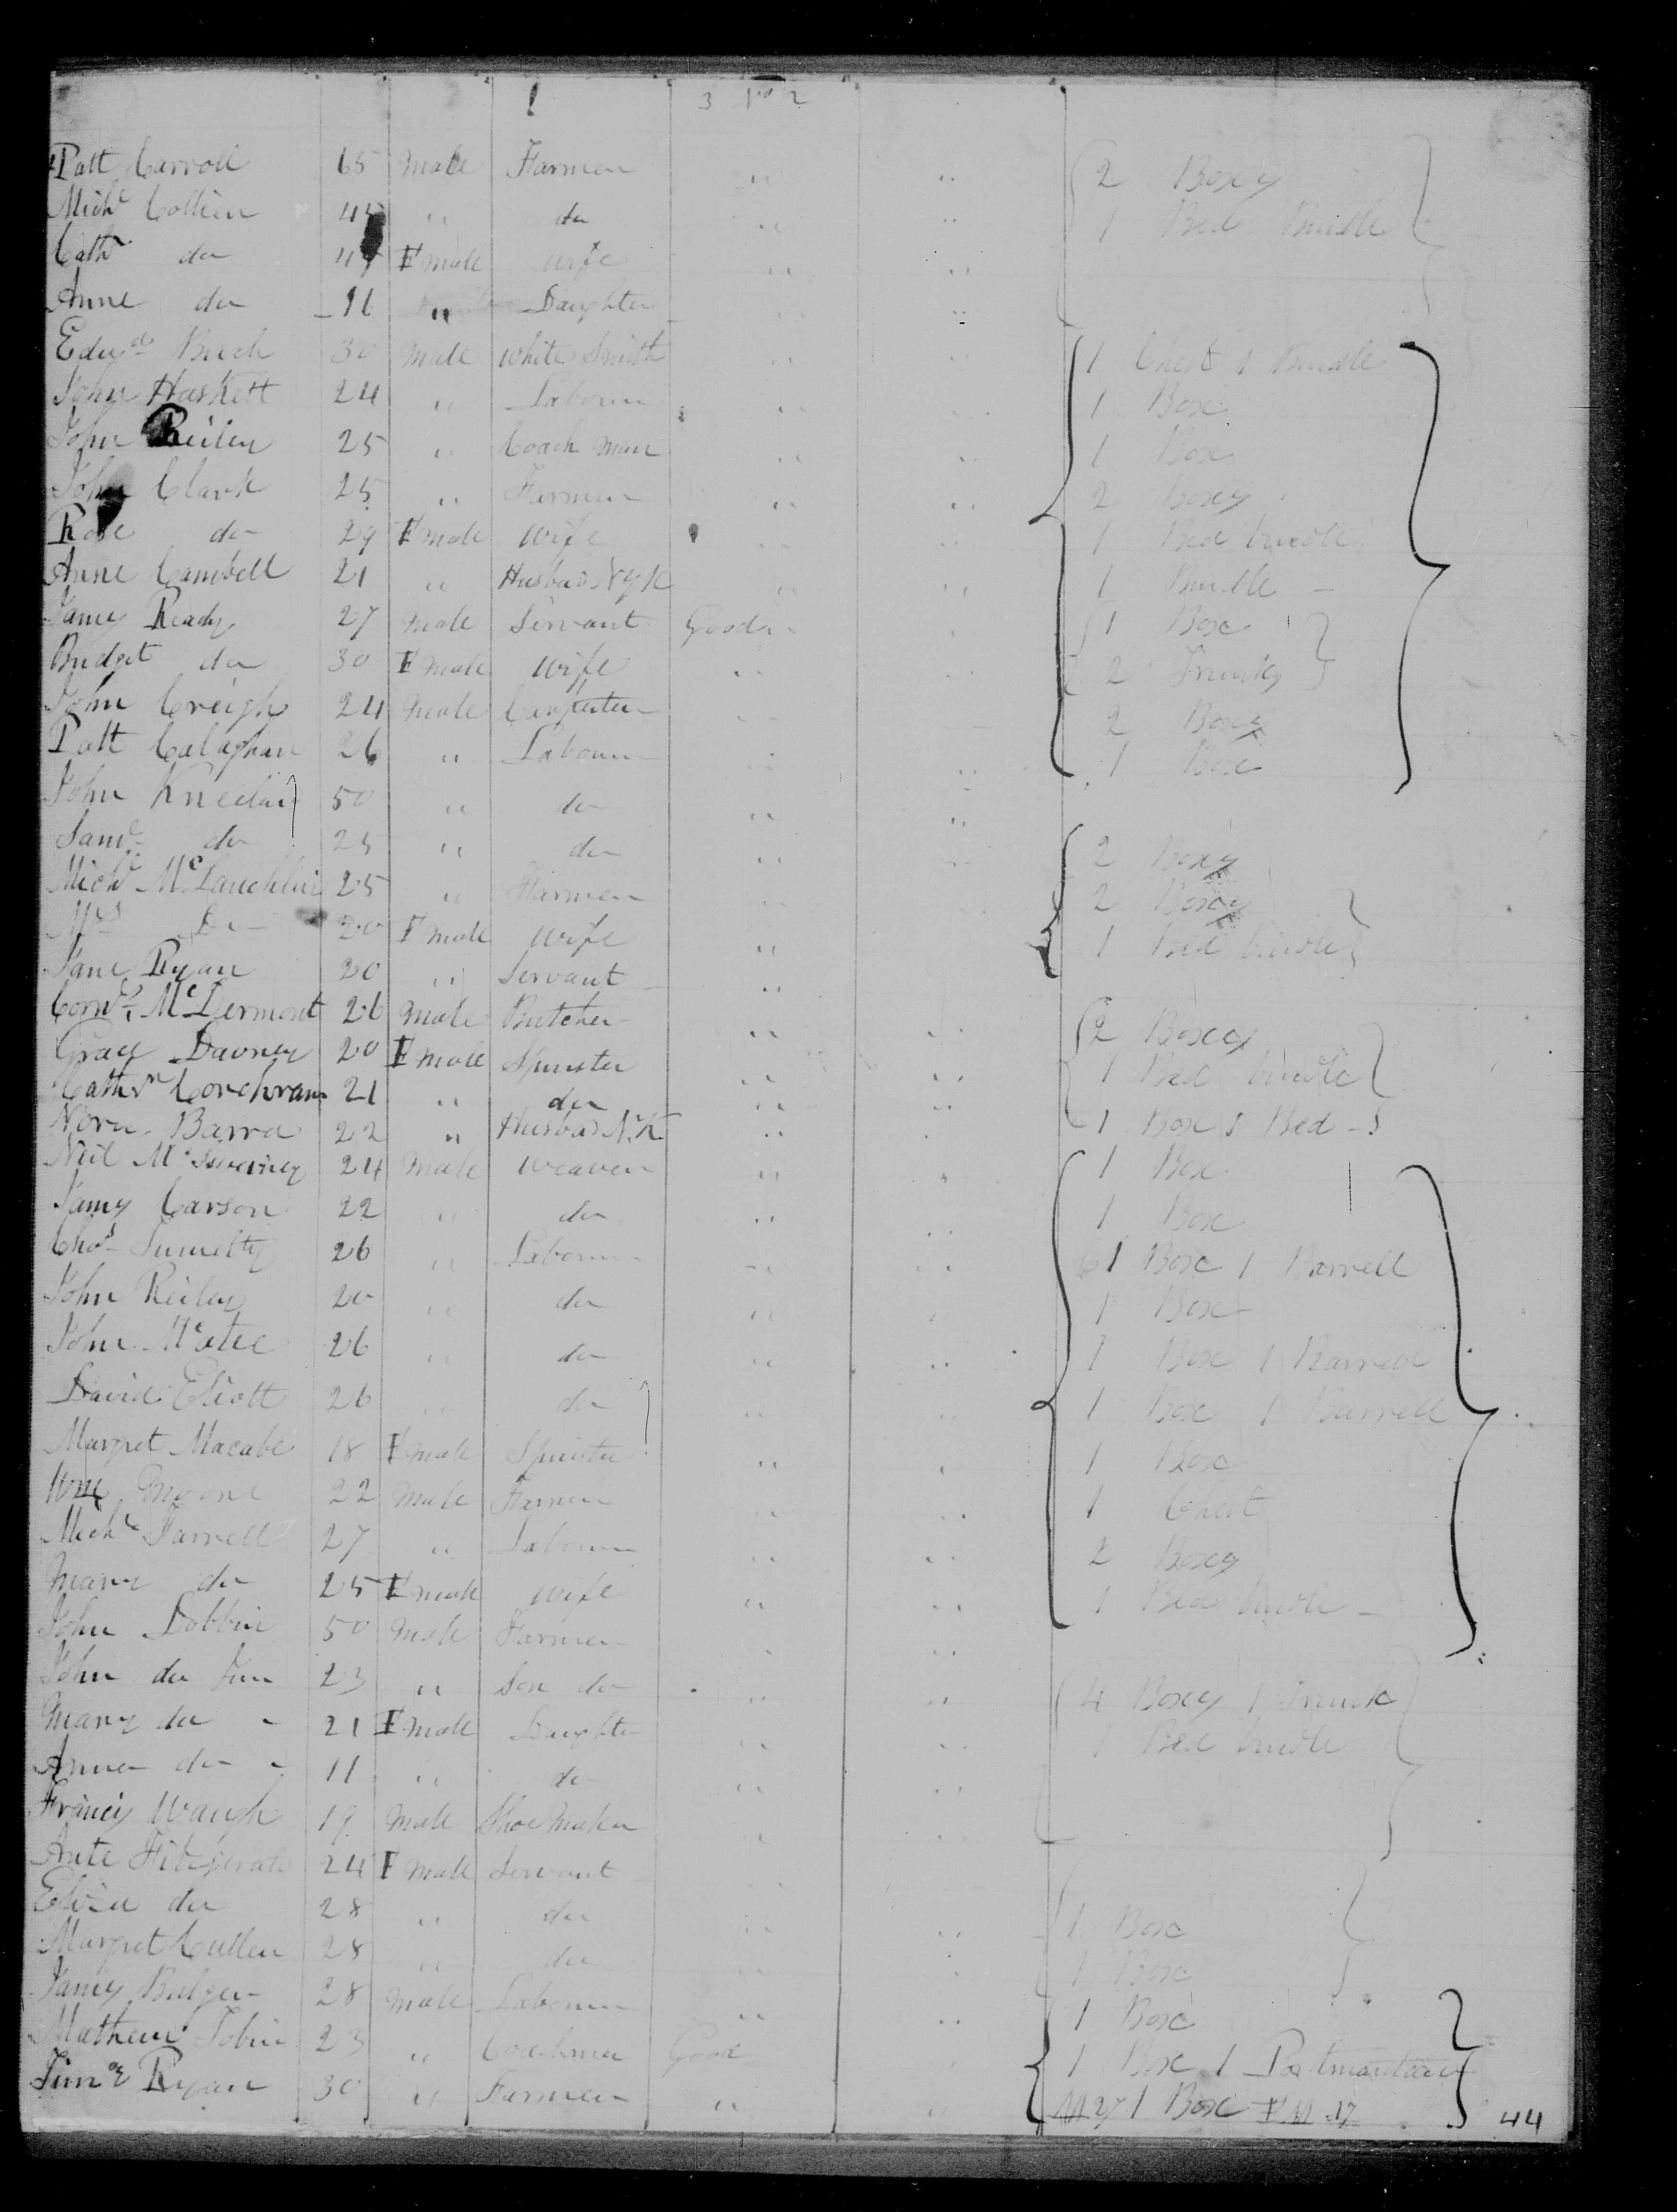 3 No 2
Patt Carroll 65 Male Farmer " " 2 Boxes
Michl Collier 45 " do " " 1 Bed Bundle
Cathr do 45 Fmale wife " "
Anne do 16 " Daughter " "
Edwd 30 Male White Smith " " 1 Chest 1 Bundle
John Haskett 24 " Labourer " " 1 Box
John Reiley 25 " Coach man " " 1 Box
John Clark 25 " Farmer " " 2 Boxes
Rose do 29 Fmale Wife " " 1 Bed bundle
Anne Cambell 21 " Husband NYK " " 1 Bundle
James Ready 27 Male Servant Goods " 1 Box
Bridget do 30 Fmale wife " " 2 Trunks
John Creigh 24 Male Carpenter " " 2 Boxes
Patt Calaghan 26 " Labourer " " 1 Box
John 50 " do " "
Saml do 25 " do " " 2 Boxes
Michl McLauchlin 25 " Farmer " " 2 Boxes
Mrs Do 20 Fmale wife " 1 Bed bundle
Jane Ryan 20 " Servant "
Corns McDermont 26 Male Butcher " " 2 Boxes
Gracy Davney 20 Fmale Spinster " " 1 Bed bundle
Cathrn Corchran 21 " do " "
Nora Barra 22 " Husbad N.K " " 1 Box 1 Bed
Neil McSweeney 24 Male Weaver " " 1 Box
James Carson 22 " do " " 1 Box
Chos 26 " Labourer " " 1 Box 1 Barrell
John Reiley 20 " do " " 1 Box
John McAtee 26 " do " " 1 Box 1 Barrell
David Eliott 26 " do " " 1 Box 1 Barrell
Margret Macabe 18 Fmale Spinster " " 1 Box
Wm Moone 22 Male Farmer " " 1 Chest
Michl Farrell 27 " Labourer " " 2 Boxes
Mary do 25 Fmale wife " " 1 Bed bundle
John Dobbin 50 Male Farmer " "
John do Jun 23 " Son do " " 4 Boxes 1 Trunk
Mary do 21 Fmale Daughter " " 1 Bed bundle
Anne do 11 " do " "
Francis Waugh 19 Male Shoe Maker " "
Fitzgerald 24 Fmale Servant " "
Eliza do 28 " do " " 1 Box
Margret Cullen 28 " do " " 1 Box
James Bulger 28 Male Labourer " " 1 Box
Mathew Tobin 23 " Coachman Good " 1 Box 1 Portmantau
Timoy Ryan 30 " Farmer " " M 27 1 Box FM 17 44